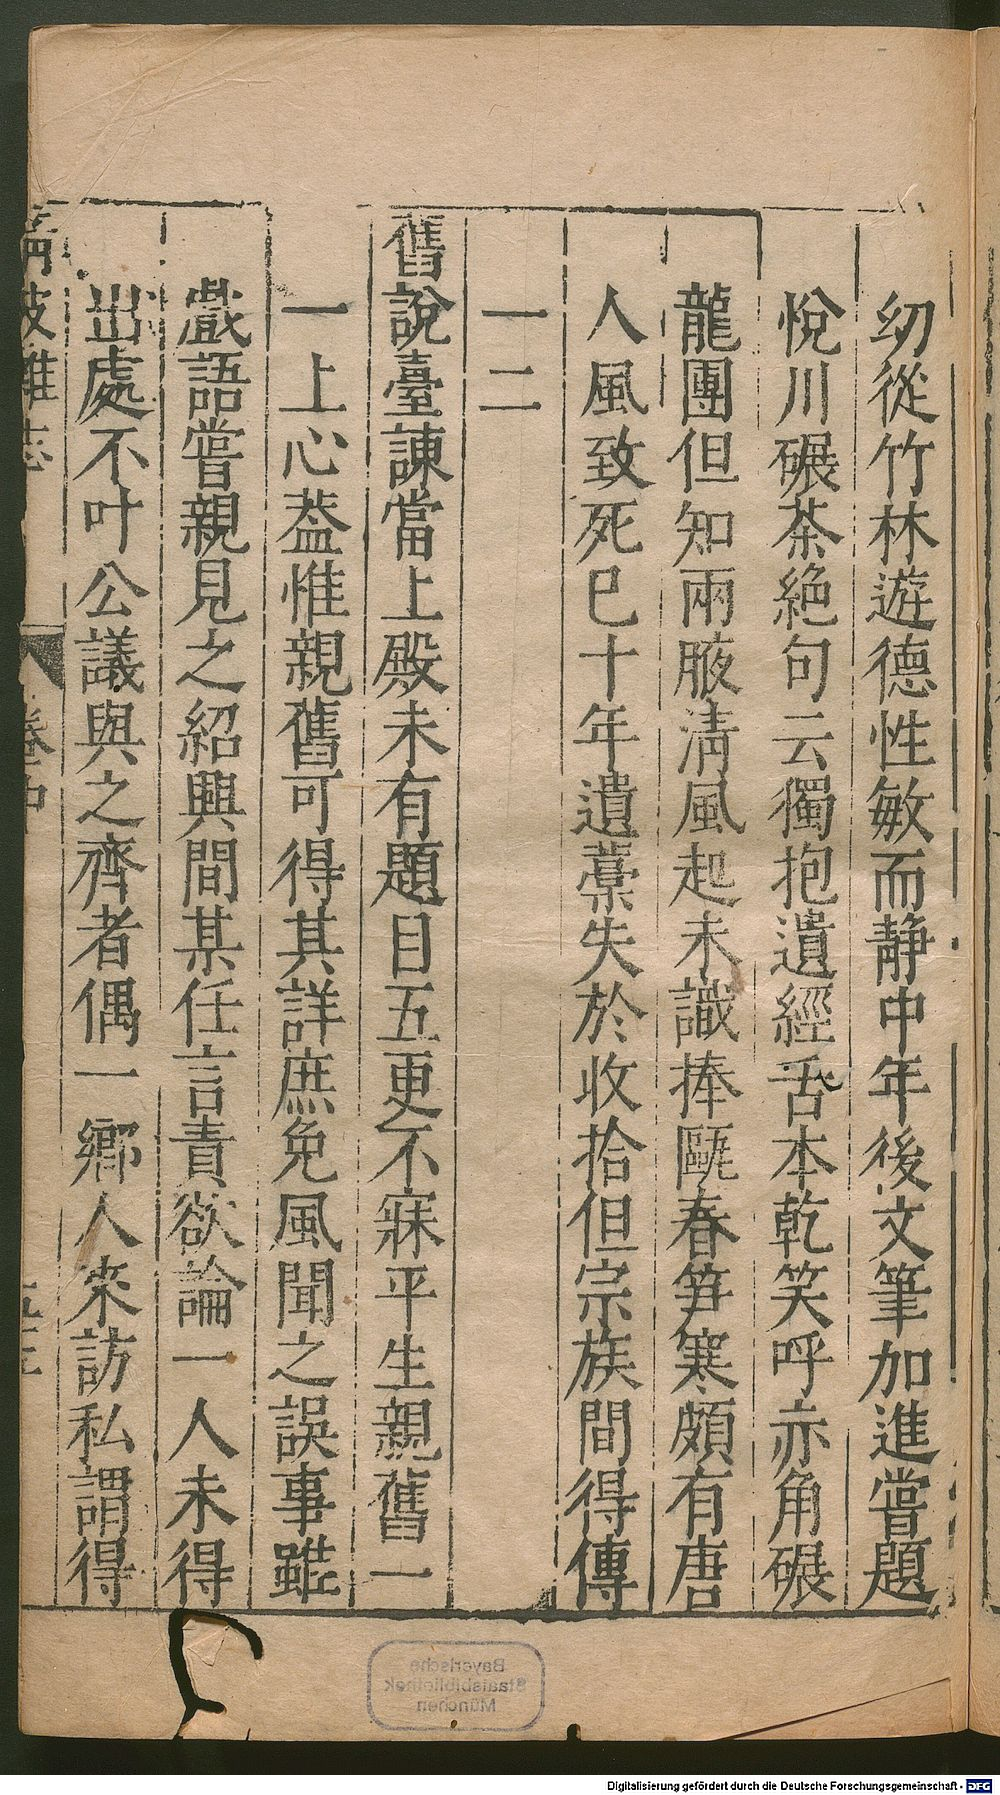 幼從竹林遊德性敏而靜中年後文筆加進嘗題
悅川碾茶絕句云獨抱遺經舌本乾笑呼赤角碾
龍團但知兩腋淸風起未識捧甌春笋寒頗有唐
人風致死巳十年遺藁失於收拾但宗族間得傳
一二
舊說臺諫當上殿未有題目五更不寐平生親舊一
一上心葢惟親舊可得其詳庶免風聞之誤事雖
戲語嘗親見之紹興間某任言責欲論一人未得
出處不叶公議與之齊者偶一鄉人來訪私謂得
清波雜志
卷中
Bayerische
Staatsbibliothek
München
Digitalisierung gefördert durch die Deutsche Forschungsgemeinschaft - DFG